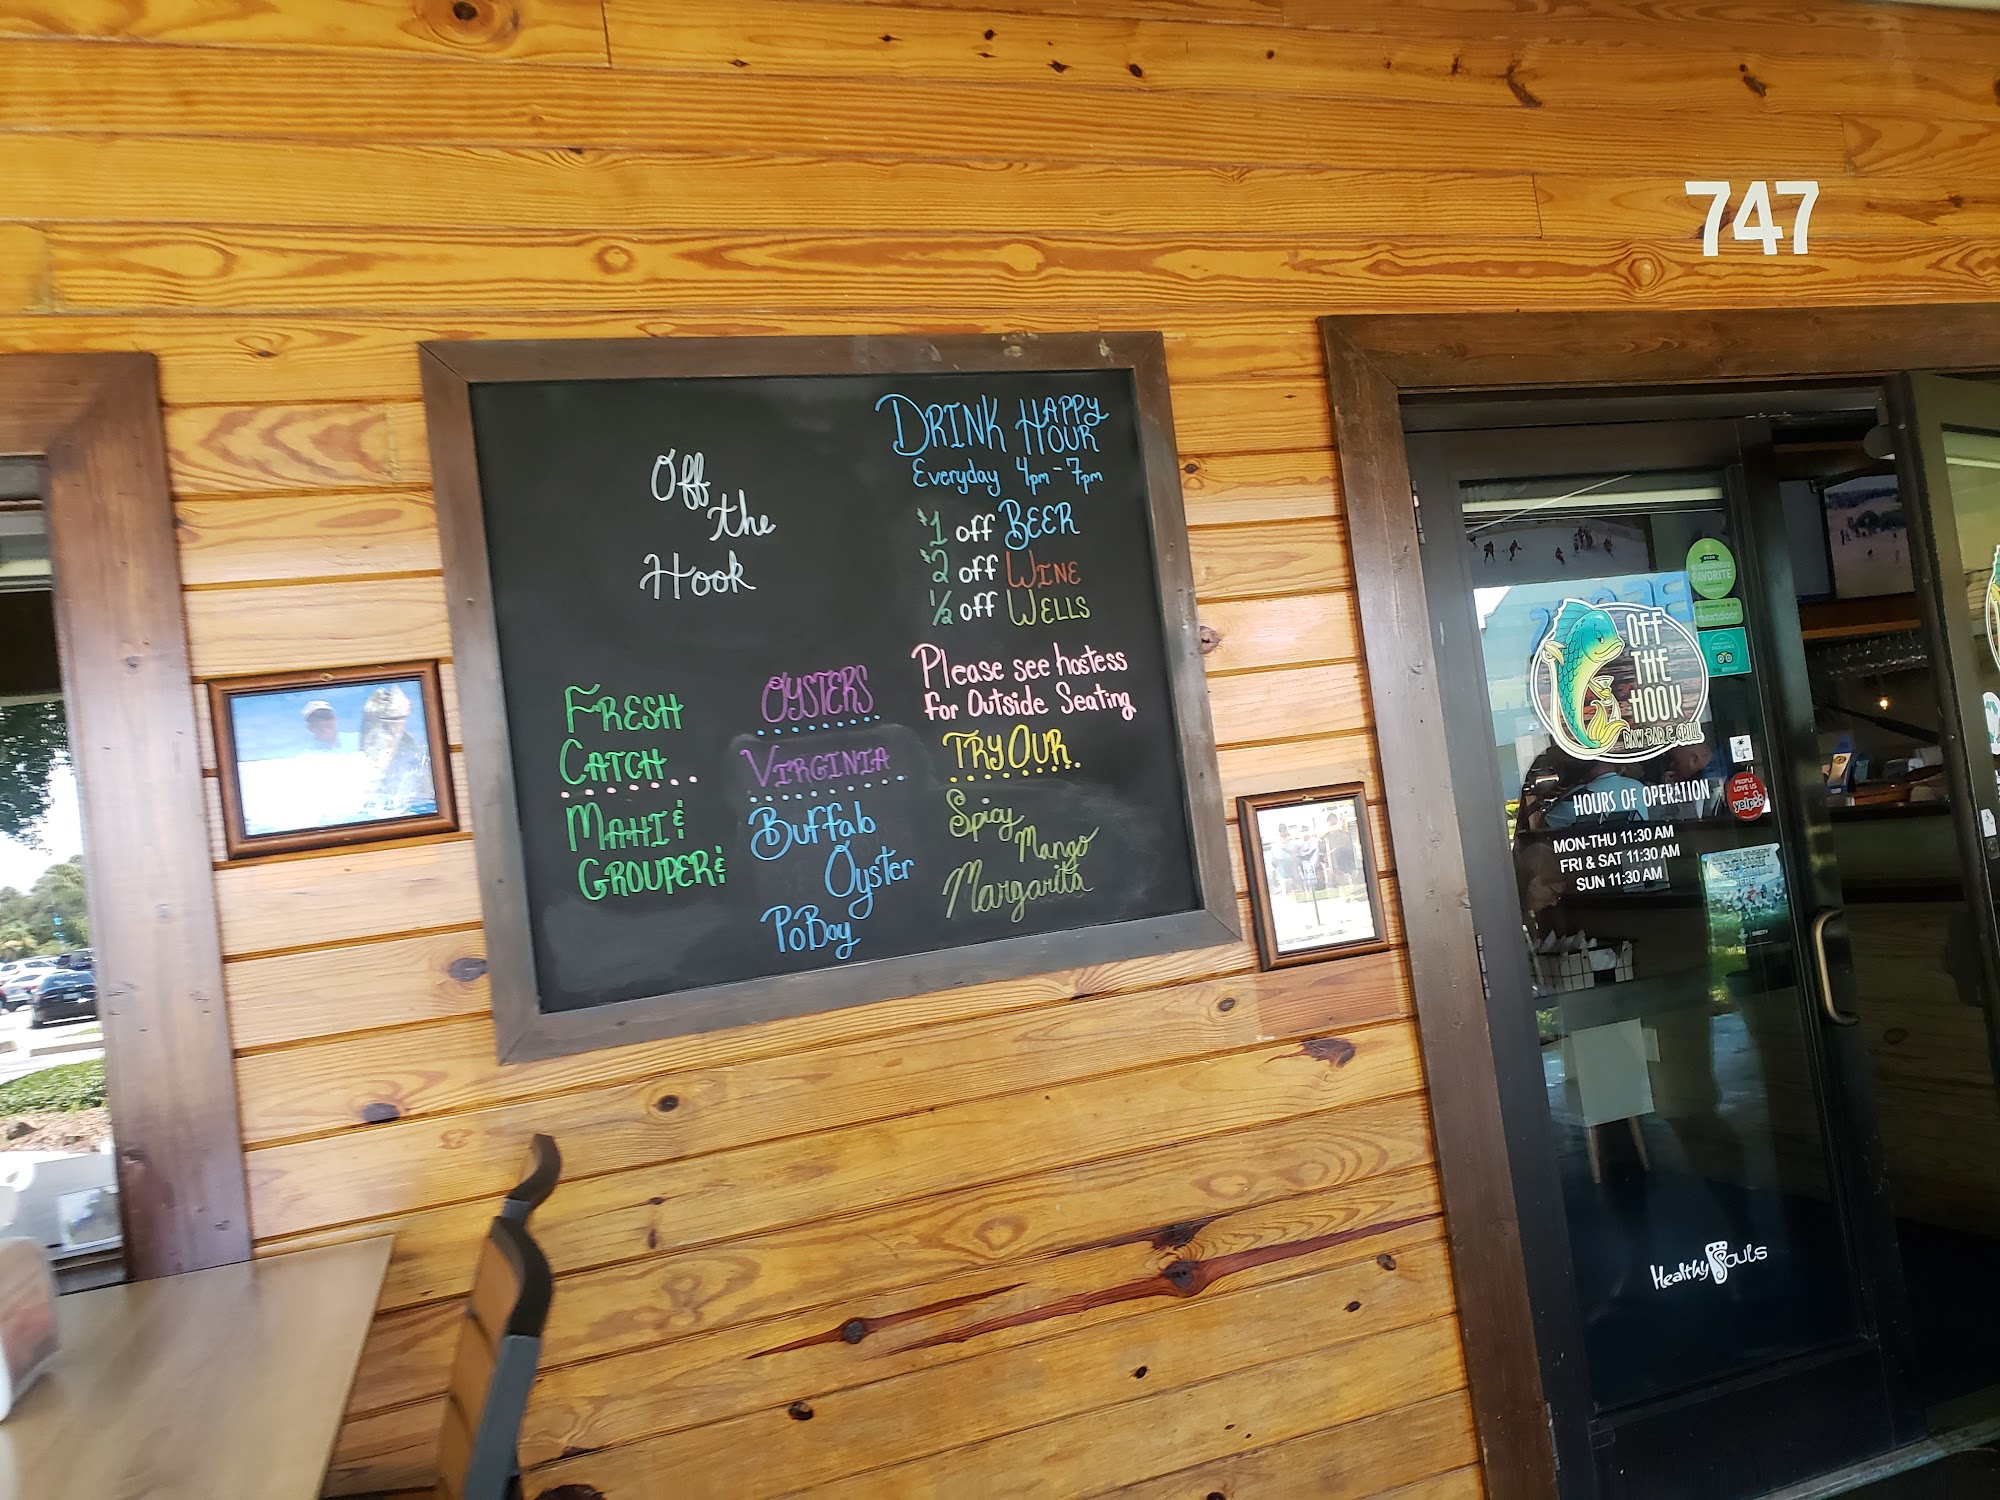 747
Off
the
Hook
DRINK HAPPY HOUR
Everyday 4pm-7pm
$1 off BEER
$2 off WINE
1/2 off WELLS
Please see hostess
for Outside Seating
FRESH
CATCH..
MAHI &
GROUPER &
OYSTERS
VIRGINIA
Buffalo
Oyster
PoBoy
TRY OUR
Spicy
Mango
Margarita
OFF
THE
HOOK
RAW BAR & GRILL
HOURS OF OPERATION
MON-THU 11:30 AM
FRI & SAT 11:30 AM
SUN 11:30 AM
FAVORITE
nextdoor
PEOPLE
LOVE US
yelp
Healthy Souls